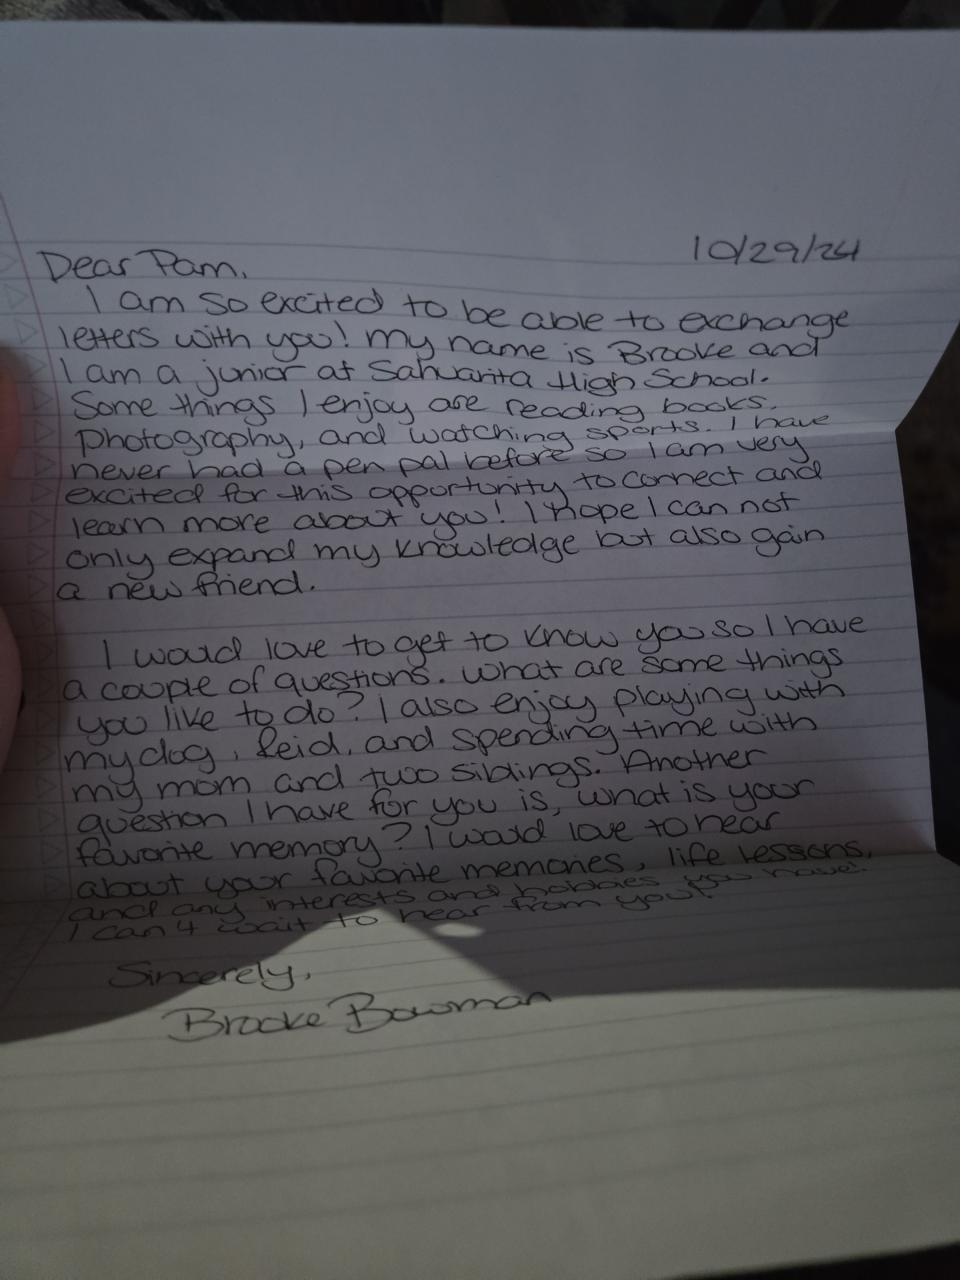 10/29/24
Dear Pam,
I am so excited to be able to exchange
letters with you! My name is Brooke and
I am a junior at Sahuarita High School.
Some things I enjoy are reading books,
photography, and watching sports. I have
never had a pen pal before so I am very
excited for this opportunity to connect and
learn more about you! I hope I can not
only expand my knowledge but also gain
a new friend.
I would love to get to know you so I have
a couple of questions. What are some things
you like to do? I also enjoy playing with
my dog, Reid, and spending time with
my mom and two siblings. Another
question I have for you is, what is your
favorite memory? I would love to hear
about your favorite memories, life lessons,
and any interests and hobbies you have!
I can't wait to hear from you!
Sincerely,
Brooke Bowman